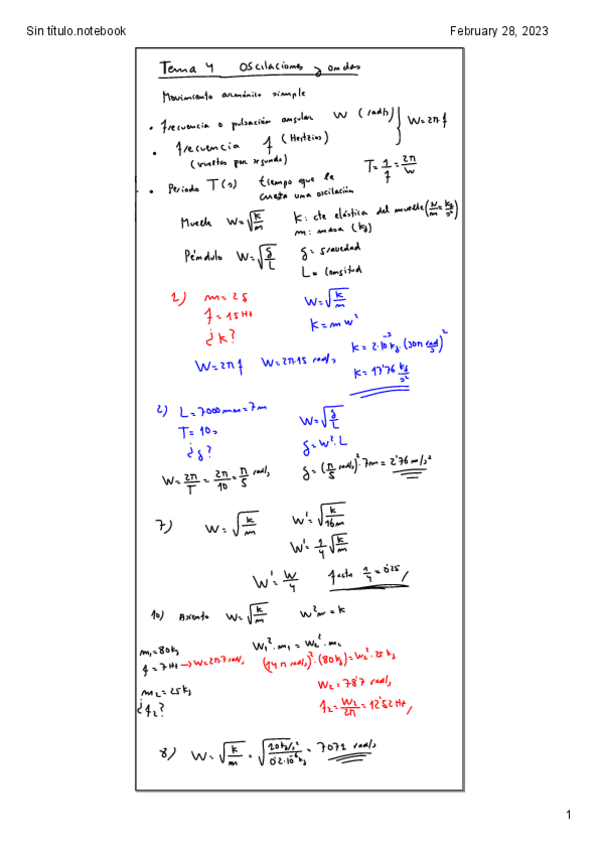 Sin título.notebook
February 28, 2023
Tema 4 Oscilaciones y ondas
Movimiento armónico simple
• frecuencia o pulsación angular W (rad/s)
W=2π f
• frecuencia f (Hertzios)
(vueltas por segundo)
T=1/f=2π/W
• Periodo T(s) tiempo que le
cuesta una oscilación
Muelle W=√(k/m) k: cte elástica del muelle (N/m = kg/s²)
m: masa (kg)
Péndulo W=√(g/L) g= gravedad
L= Longitud
1) m=2g W=√(k/m)
f=15Hz K=mw²
¿k?
W=2πf W=2π·15 rad/s k=2·10⁻³kg·(30π rad/s)²
k=17'76 kg/s²
2) L=7000mm=7m W=√(g/L)
T=10s
¿g? g=W²·L
W=2π/T=2π/10=π/5 rad/s g=(π/5 rad/s)²·7m=2'76m/s²
7) W=√(k/m) W'=√(k/16m)
W'=1/4√(k/m)
W'=W/4 facto 1/4=0'25
10) Asiento W=√(k/m) W²m=k
m₁=80kg W₁²·m₁=W₂²·m₂
f=7Hz→W=2π·7rad/s (14π rad/s)²·(80kg)=W₂²·25kg
m₂=25kg W₂=78'7 rad/s
¿f₂? f₂=W₂/2π=12'52Hz
8) W=√(k/m)=√(10kg/s²/0'2·10⁻⁶kg)=7071 rad/s
1